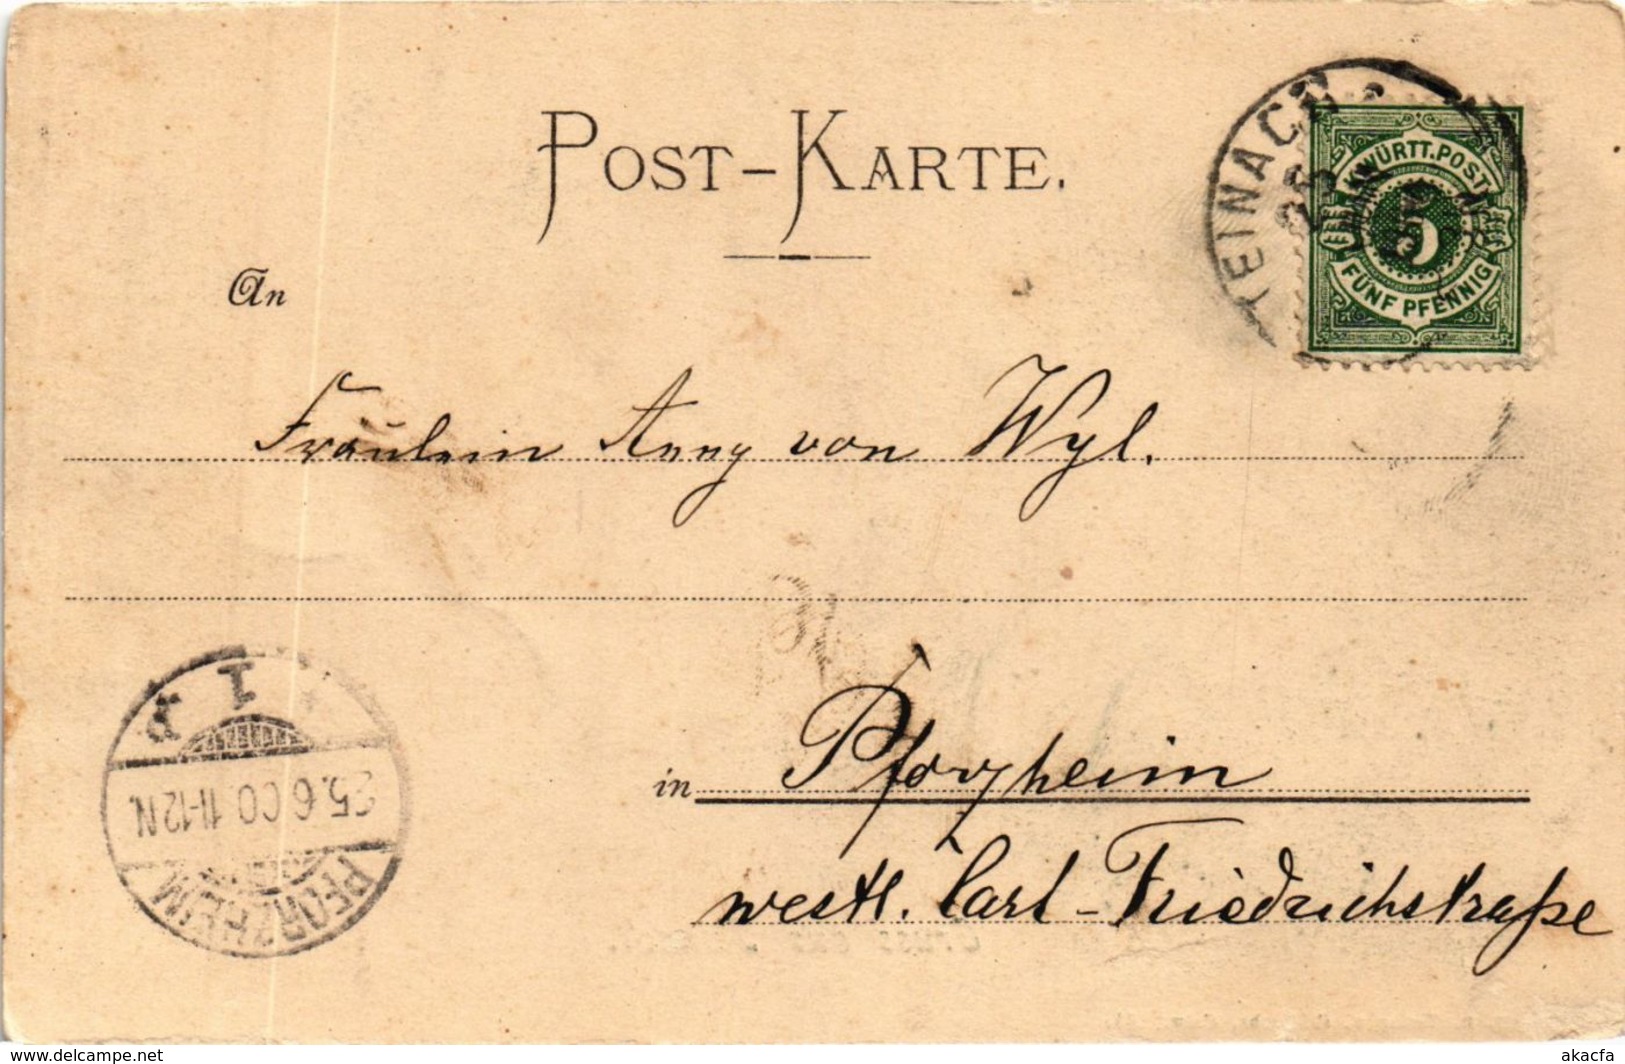 POST-KARTE.
TEINACH
K. WÜRTT. POST
5
FÜNF PFENNIG
An
Fräulein Anny von Wyl.
in Pforzheim
westl. Carl-Friedrichstraße
PFORZHEIM
25.6.00 11-12N
1
delcampe.net
akacfa